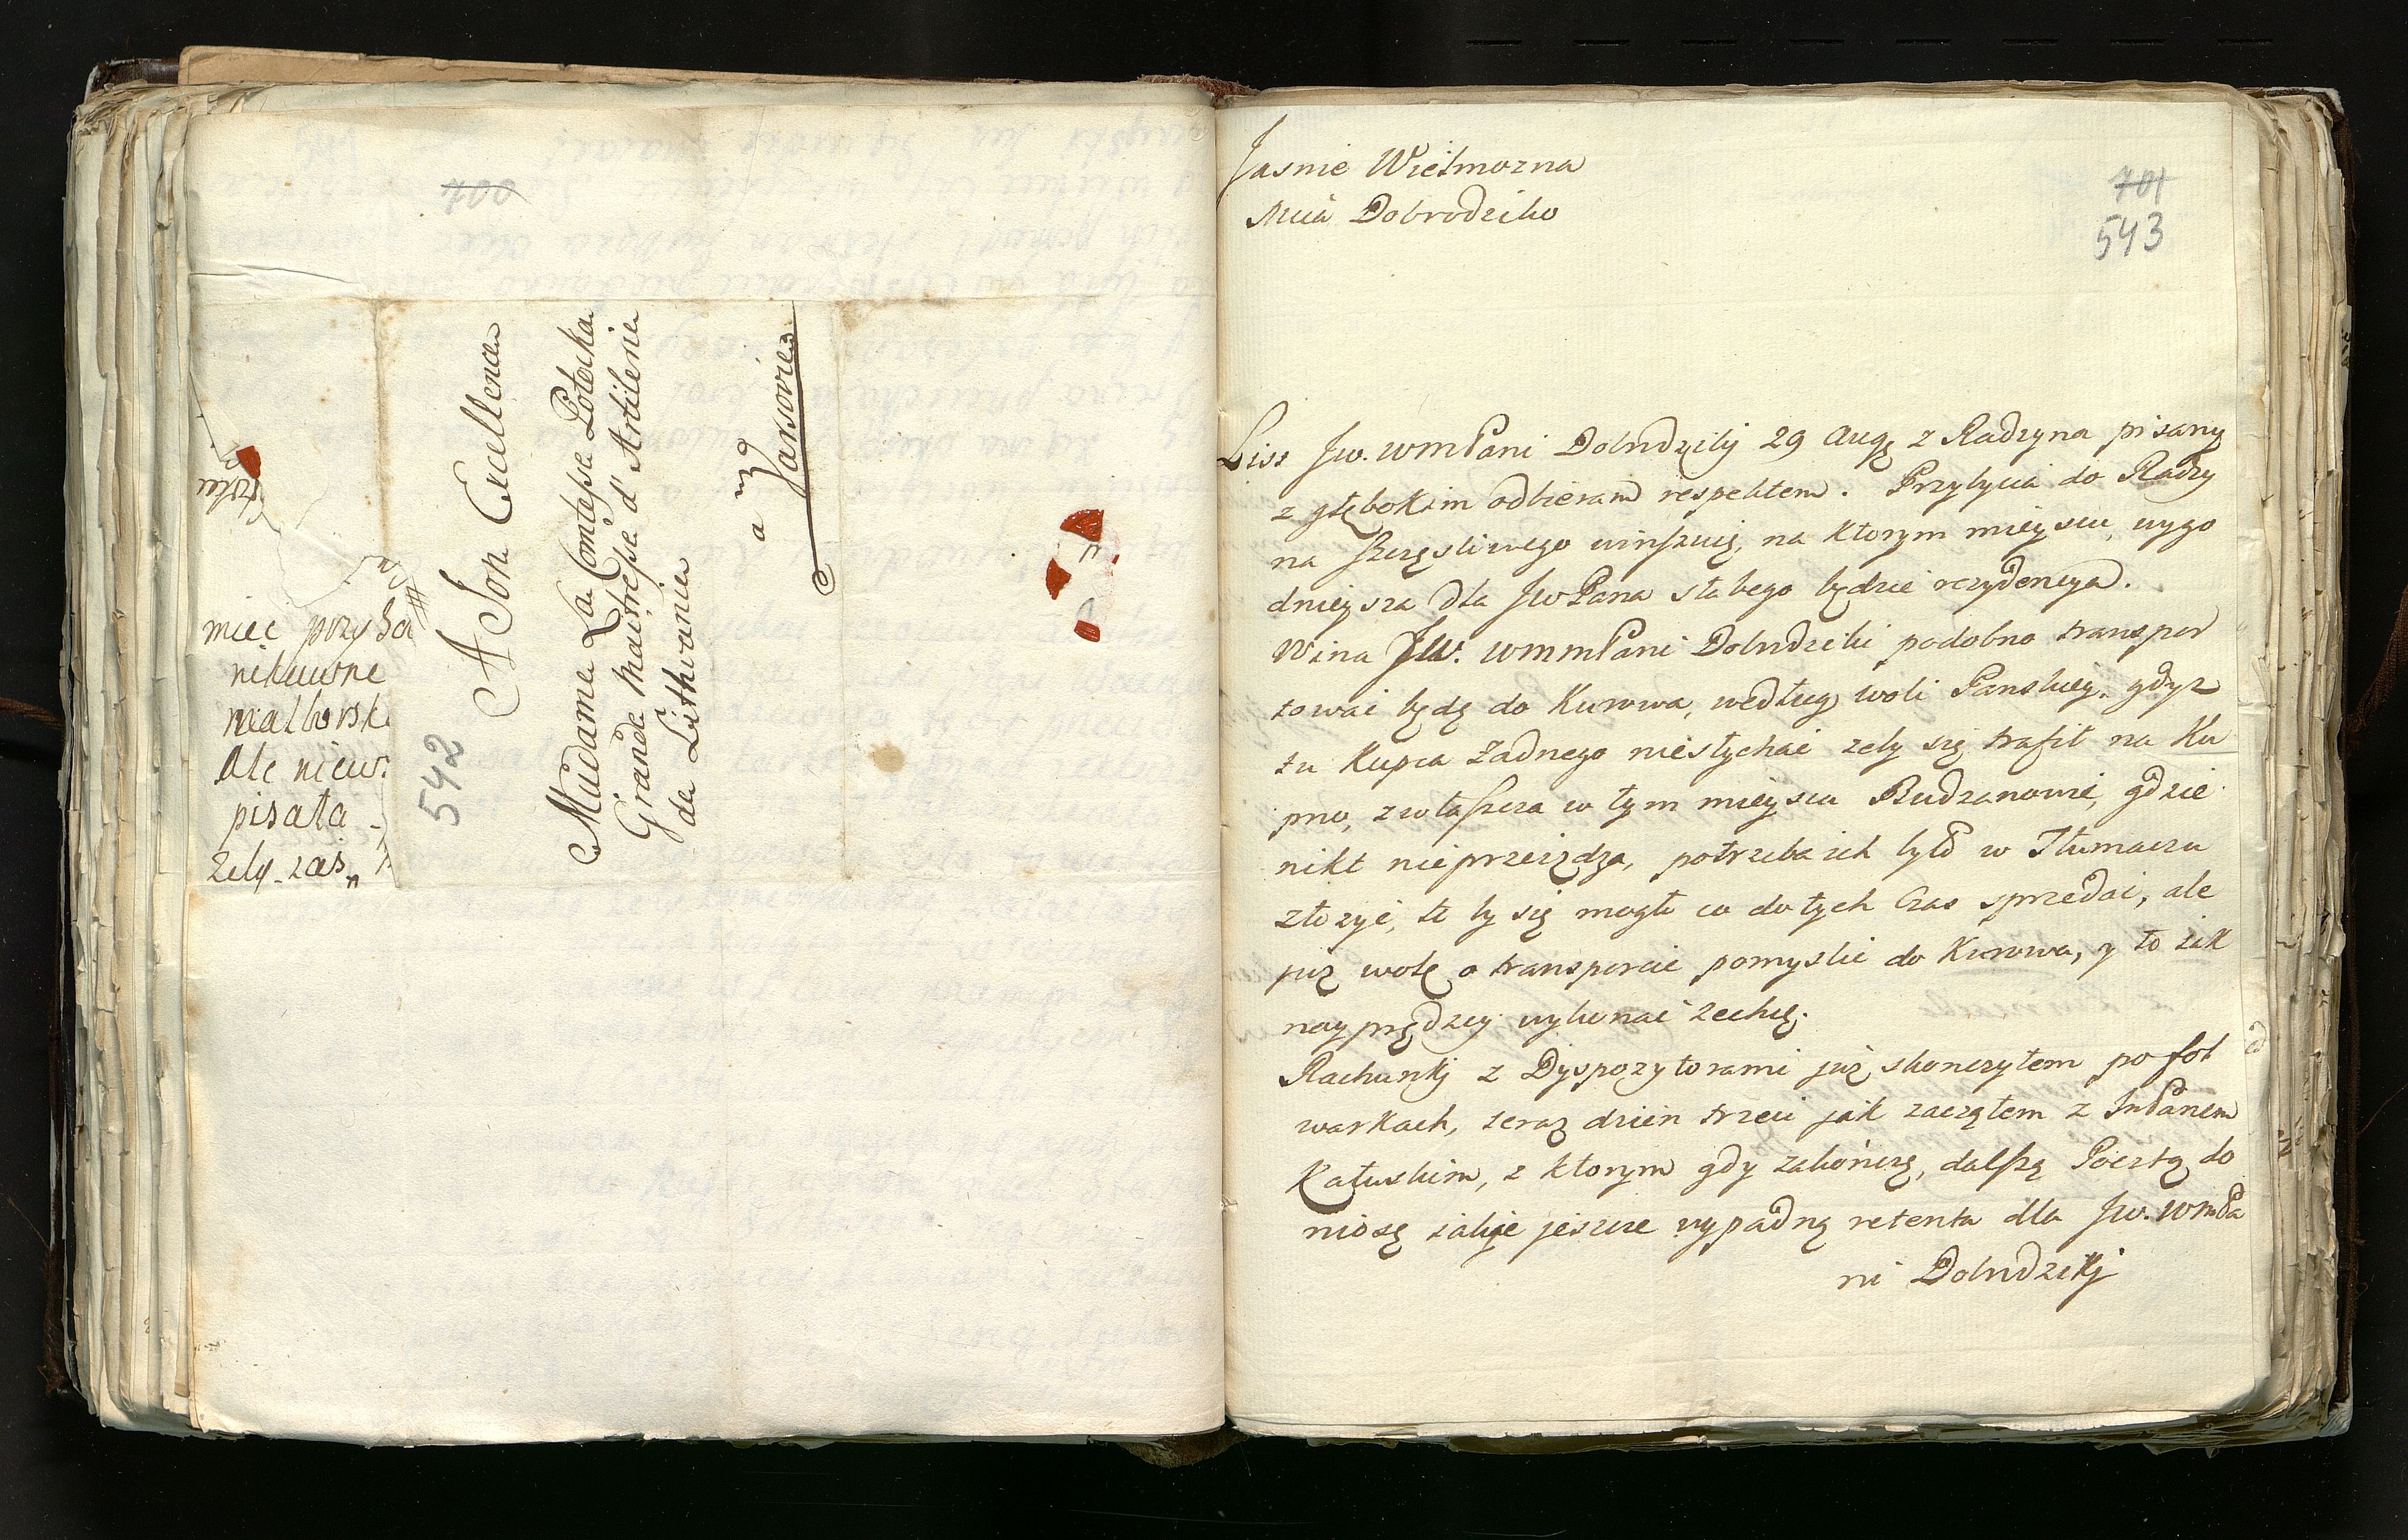 700
A Son Excellence
Madame La Comtesse Potocka
Grande Maitresse d'Artilerie
de Lithvanie
a
Varsovie
542
miec przysła
nikuwne
malborsk
Ale niew.
pisała
zeby zas
Jasnie Wielmozna
Mcia Dobrodziko
701
543
List Jw. WMPani Dobrdziky 29 Aug z Radzyna pisany
z głębokim odbieram respektem. Przybycia do Radzy
na szczęsliwego winszuię, na ktorym mieyscu, wygo
dnieysza dla JWPana słabego będzie rezydencya.
Wina JW. WMMPani Dobrdziki podobno transpor
towac będę do Kurowa, według woli Panskiey. gdyz
tu Kupca Zadnego niesłychac zeby się trafił na Ku
pno, zwłaszcza w tym mieyscu Budzanowie, gdzie
nikt nieprzeiezdza, potrzeba ich było w Tłumaczu
złozyc, to by się mogło co dotych Czas sprzedac, ale
juz wolę o transporcie pomyslic do Kurowa, y to iak
nayprędzey wykonac zechcę.
Rachunkj z Dyspozytorami juz skonczyłem po fol
warkach, teraz dzien trzeci jak zacząłem z JmPanem
Kałuskim, z ktorym gdy zakonczę, dalszą Pocztą do
niosę iakie jeszcze wypadną retenta dla Jw. WMPa
ni Dobrdzikj